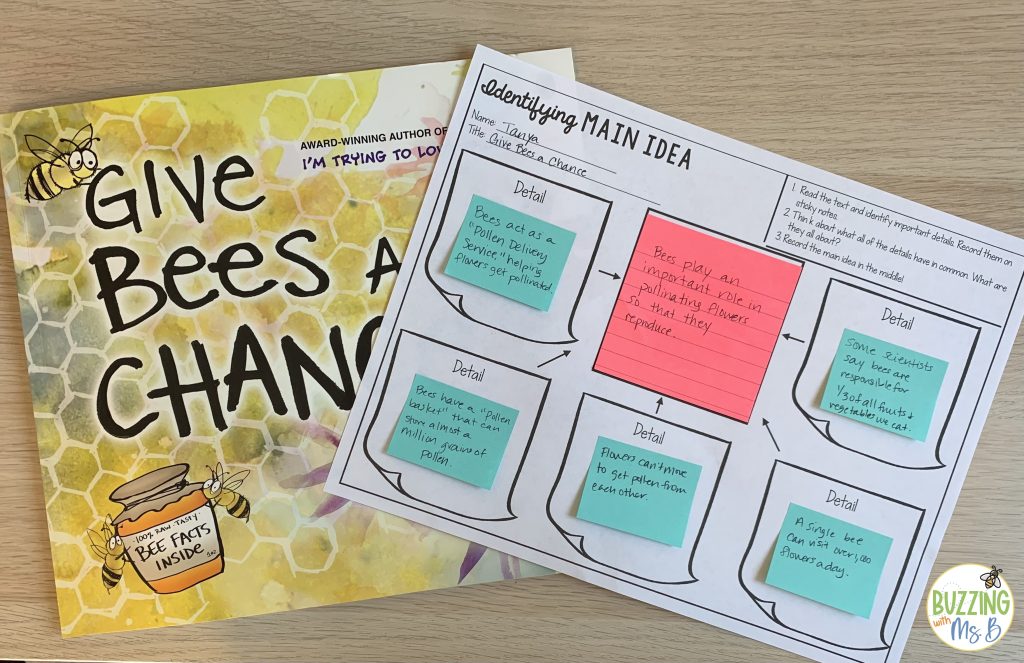 AWARD-WINNING AUTHOR OF
I'M TRYING TO LOV
GIVE
BEES A
CHANC
100% RAW TASTY
BEE FACTS
INSIDE
Identifying MAIN IDEA
Name: Tanya
Title: Give Bees a Chance
1. Read the text and identify important details. Record them on
sticky notes.
2. Think about what all of the details have in common. What are
they all about?
3. Record the main idea in the middle!
Detail
Bees act as a
"Pollen Delivery
Service" helping
flowers get pollinated.
Bees play an
important role in
pollinating flowers
so that they
reproduce.
Detail
Some scientists
say bees are
responsible for
1/3 of all fruits &
vegetables we eat.
Detail
Bees have a "pollen
basket" that can
store almost a
million grains of
pollen.
Detail
Flowers can't move
to get pollen from
each other.
Detail
A single bee
can visit over 1,000
flowers a day.
BUZZING
with
Ms. B